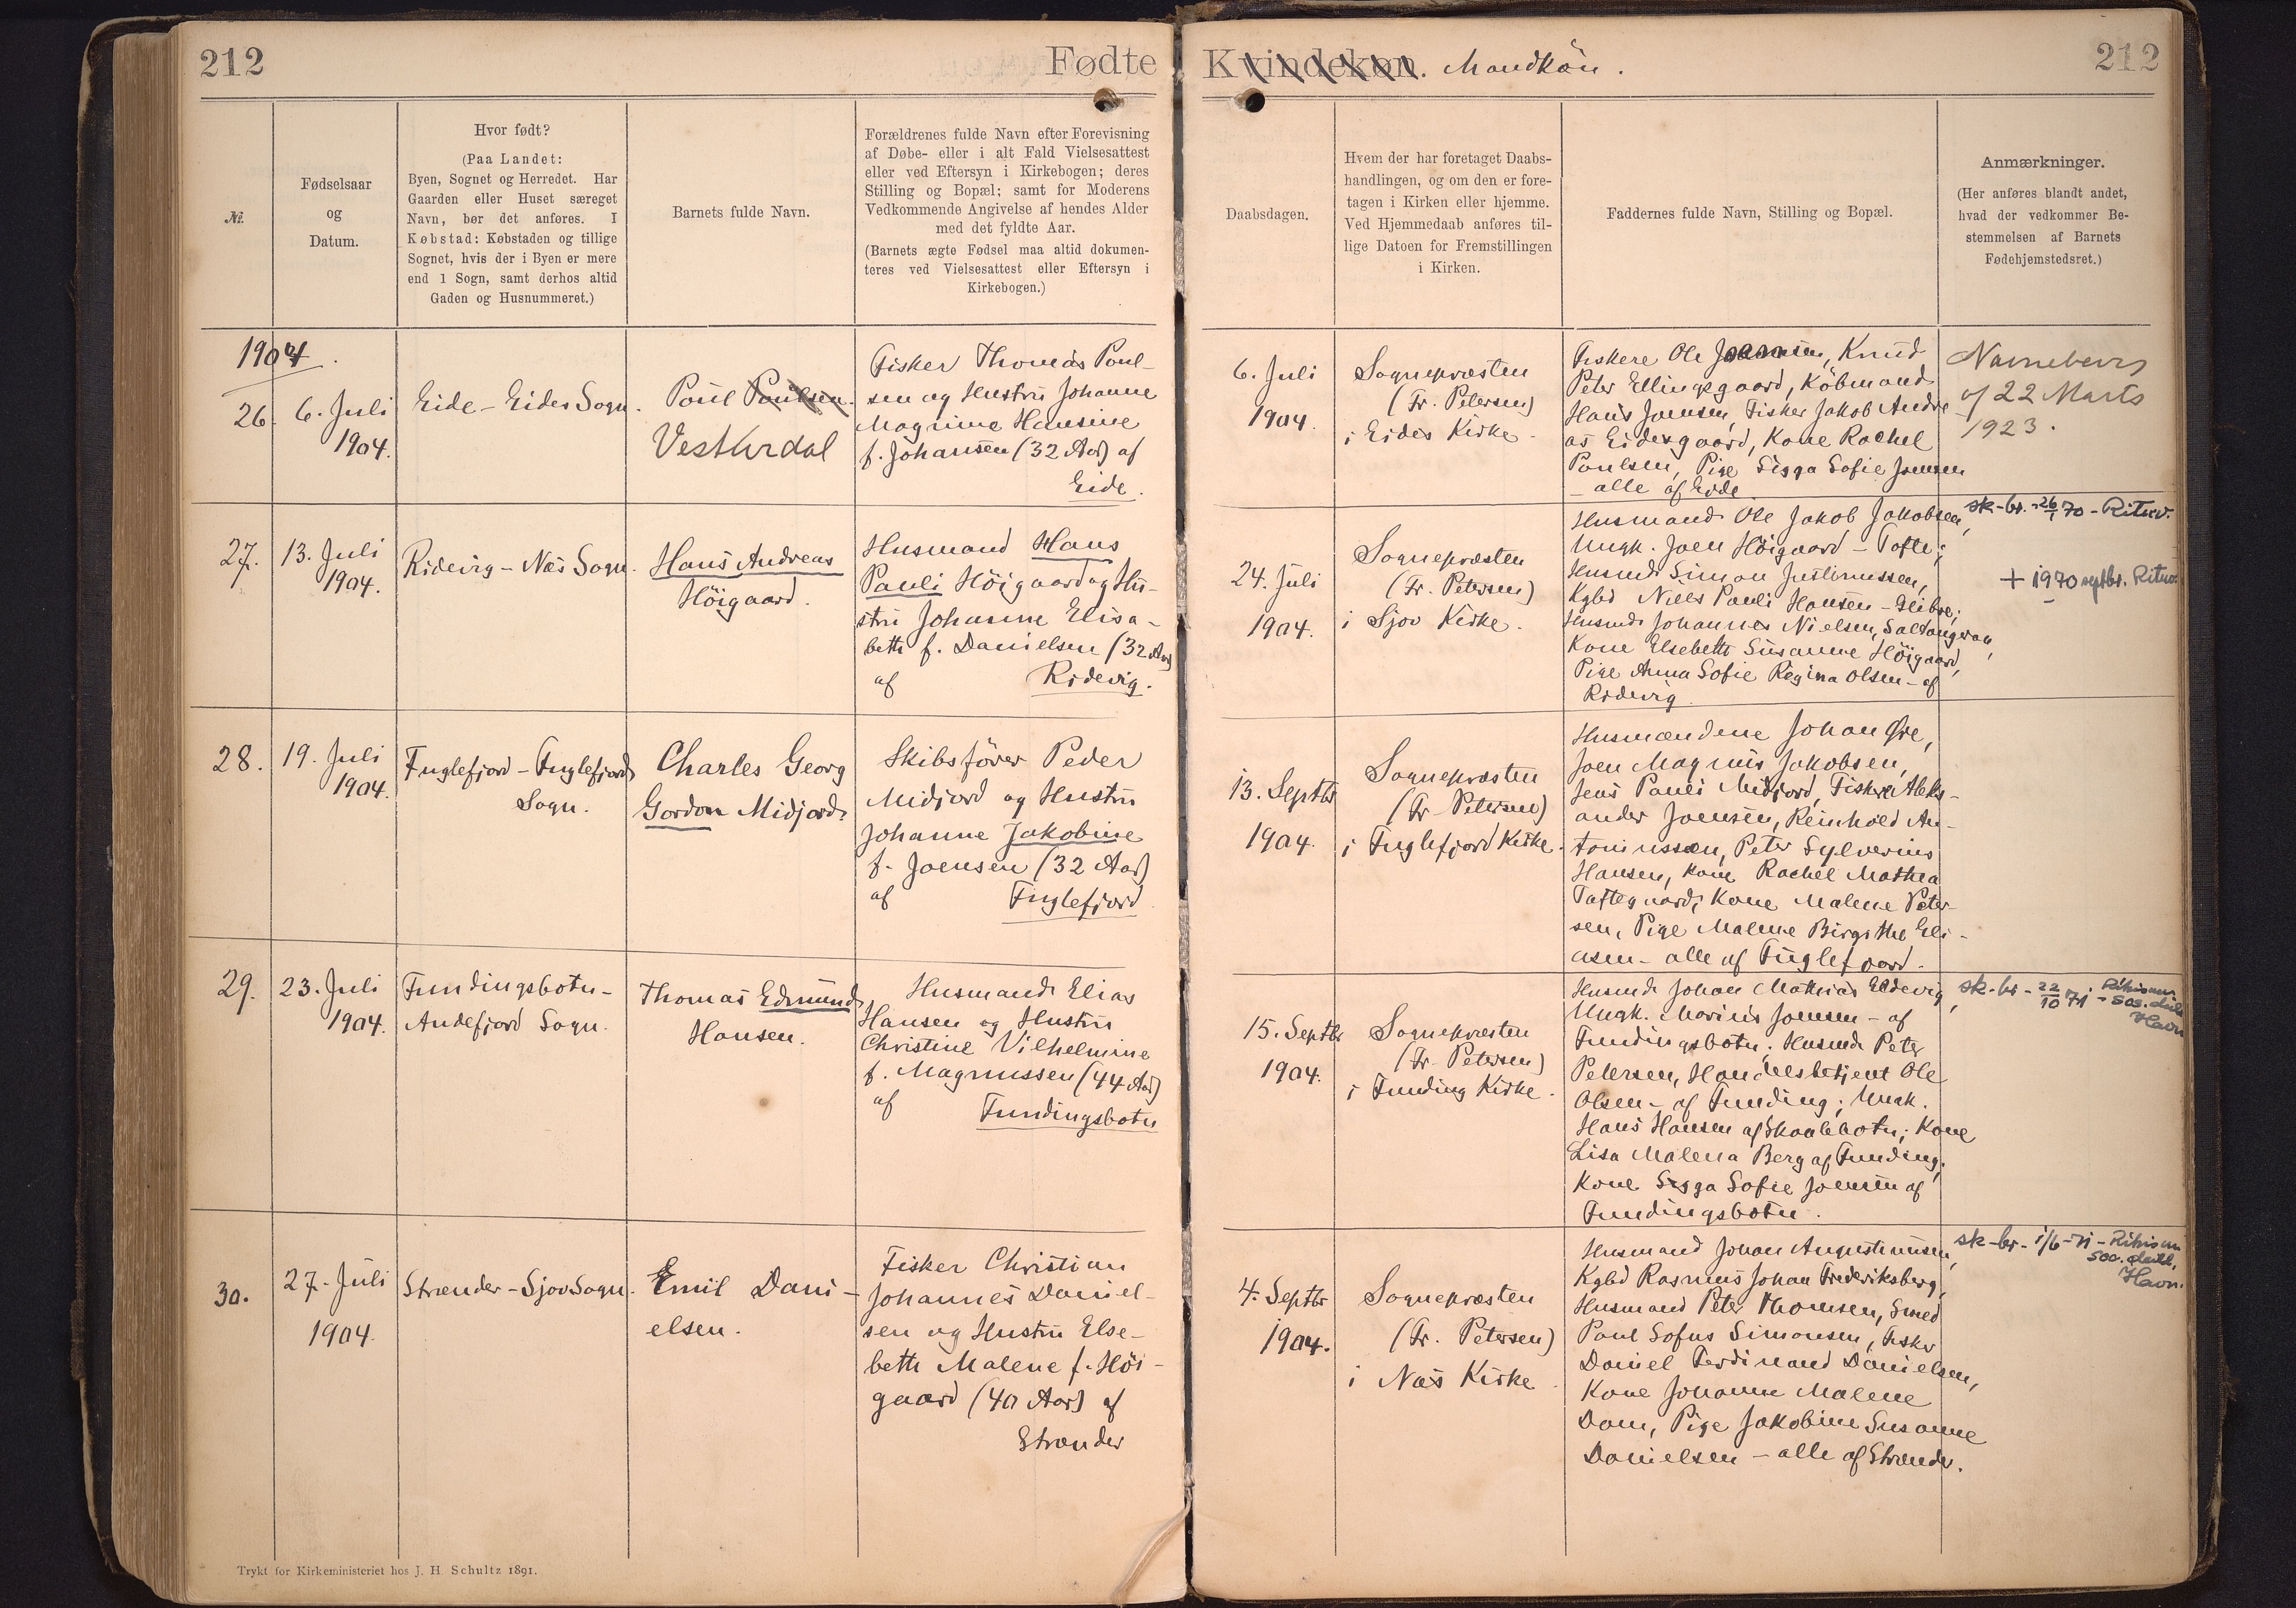 212
Fødte
Nr.
Fødselsaar
og
Datum.
Hvor født?
(Paa Landet:
Byen, Sognet og Herredet. Har
Gaarden eller Huset særeget
Navn, bør det anføres. I
Købstad: Købstaden og tillige
Sognet, hvis der i Byen er mere
end 1 Sogn, samt derhos altid
Gaden og Husnummeret.)
Barnets fulde Navn.
Forældrenes fulde Navn efter Forevisning
af Døbe- eller i alt Fald Vielsesattest
eller ved Eftersyn i Kirkebogen; deres
Stilling og Bopæl; samt for Moderens
Vedkommende Angivelse af hendes Alder
med det fyldte Aar.
(Barnets ægte Fødsel maa altid dokumen-
teres ved Vielsesattest eller Eftersyn i
Kirkebogen.)
1904.
26.
6. Juli
1904.
Eide - Eides Sogn.
Poul Poulsen.
Vesturdal
Fisker Thomas Poul-
sen og Hustru Johanne
Magnine Hansine
f. Johansen (32 Aar) af
Eide.
27.
13. Juli
1904.
Ridevig - Næs Sogn.
Hans Andreas
Höigaard.
Husmand Hans
Pauli Höigaard og Hu-
stru Johanne Elisa-
beth f. Danielsen (32 Aar)
af Ridevig.
28.
19. Juli
1904.
Fuglefjord - Fuglefjord
Sogn.
Charles Georg
Gordon Midjord.
Skibsförer Peder
Midjord og Hustru
Johanne Jakobine
f. Joensen (32 Aar)
af Fuglefjord
29.
23. Juli
1904.
Fundingsbotn -
Andefjord Sogn.
Thomas Edmund
Hansen.
Husmand Elias
Hansen og Hustru
Christine Vilhelmine
f. Magnussen (44 Aar)
af Fundingsbotn
30.
27. Juli
1904.
Strænder - Sjov Sogn.
Emil Dani-
elsen.
Fisker Christian
Johannes Daniel-
sen og Hustru Else-
beth Malene f. Höi-
gaard (40 Aar) af
Strænder
Trykt for Kirkeministeriet hos J. H. Schultz 1891.
Kvindekøn. Mandkön.
212
Daabsdagen.
Hvem der har foretaget Daabs-
handlingen, og om den er fore-
tagen i Kirken eller hjemme.
Ved Hjemmedaab anføres til-
lige Datoen for Fremstillingen
i Kirken.
Faddernes fulde Navn, Stilling og Bopæl.
Anmærkninger.
(Her anføres blandt andet,
hvad der vedkommer Be-
stemmelsen af Barnets
Fødehjemstedsret.)
6. Juli
1904.
Sognepræsten
(Fr. Petersen)
i Eides Kirke.
Fiskere Ole Joensen, Knud
Peter Ellingsgaard, Köbmand
Hans Joensen, Fisker Jakob Andre
as Eidesgaard, Kone Rachel
Poulsen, Pige Sigga Sofie Joensen
- alle af Eide
Navnebevis
af 22 Marts
1923.
24. Juli
1904.
Sognepræsten
(Fr. Petersen)
i Sjov Kirke.
Husmand Ole Jakob Jakobsen,
Ungk. Joen Höigaard - Tofte;
Husmd Simon Justinussen,
Kgbd Niels Pauli Hansen - Glibre;
Husmd Johannes Nielsen, Saltangraa,
Kone Elsebeth Susanne Höigaard,
Pige Anna Sofie Regina Olsen - af
Ridevig
sk-br. - 26/1 70 - Rituv.
+ 1970 septbr. Rituv.
13. Septbr
1904.
Sognepræsten
(Fr. Petersen)
i Fuglefjord Kirke.
Husmændene Johan Øre,
Joen Magnus Jakobsen,
Jens Pauli Midjord, Fiskere Aleks-
ander Joensen, Reinhold An-
toniussen, Peter Sylverius
Hansen, Kone Rachel Mathea
Toftegaard, Kone Malene Peter-
sen, Pige Malene Birgithe Eli-
asen - alle af Fuglefjord.
15. Septbr
1904.
Sognepræsten
(Fr. Petersen)
i Funding Kirke.
Husmd Johan Mathias Eldevig,
Ungk. Marius Joensen - af
Fundingsbotn; Husmd Peter
Petersen, Handelsbetjent Ole
Olsen - af Funding; Ungk.
Hans Hansen af Skaalebotn; Kone
Lisa Malena Berg af Funding,
Kone Sigga Sofie Joensen af
Fundingsbotn.
sk-br - 22/10 71 - Rikisum
- Sos. deild
Havn
4. Septbr
1904.
Sognepræsten
(Fr. Petersen)
i Næs Kirke
Husmand Johan Augustinussen,
Kgbd Rasmus Johan Frederiksberg,
Husmand Peter Thomsen, Smed
Poul Sofus Simonsen, Fisker
Daniel Ferdinand Danielsen,
Kone Johanne Malene
Dam, Pige Jakobine Susanne
Danielsen - alle af Strænder.
sk-br - 1/6 - 71 - Rikisum
Sos. deild,
Havn.